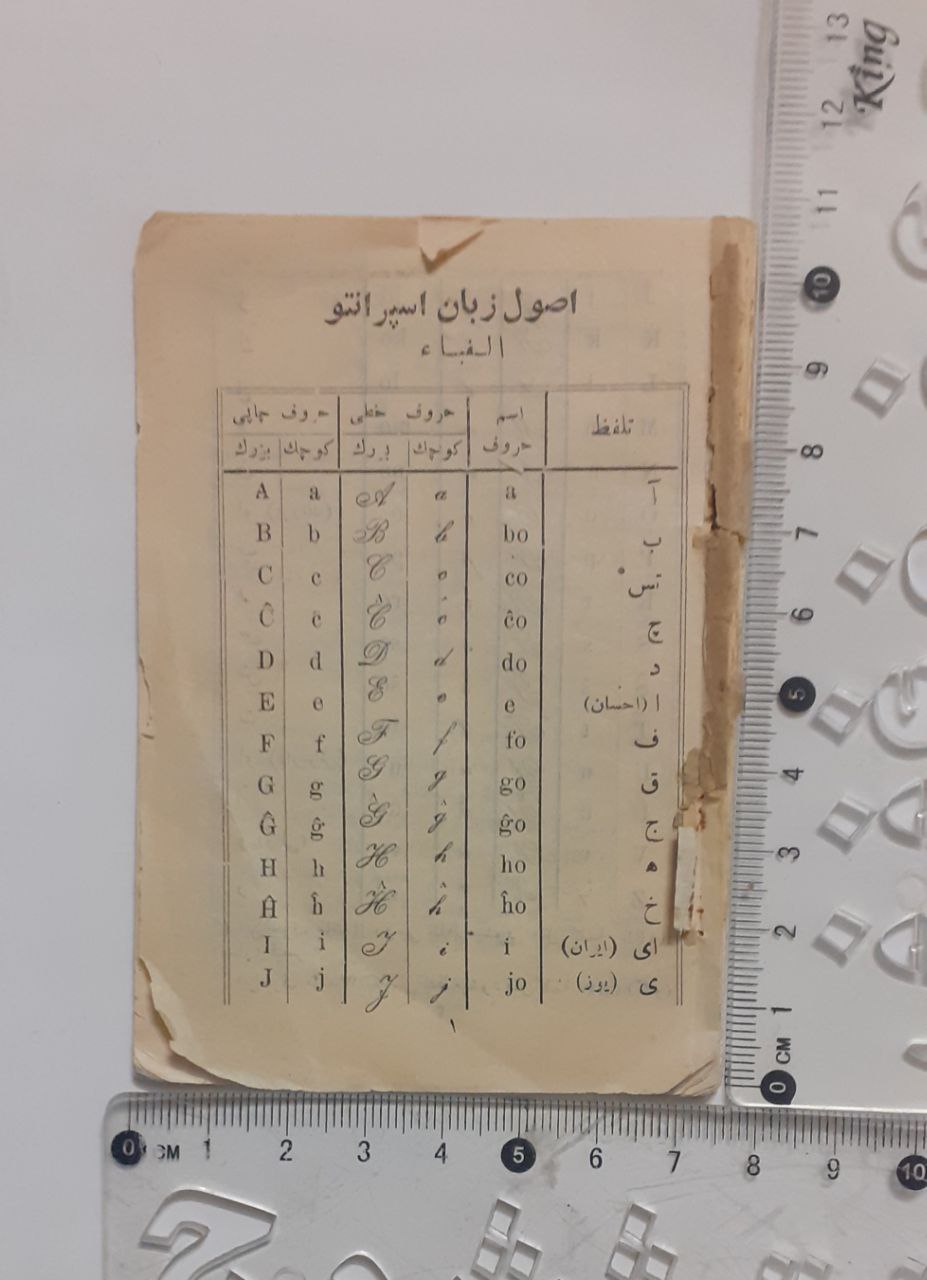 اصول زبان اسپرانتو
الفباء
حروف چاپی حروف خطی اسم حروف تلفظ
بزرك كوچك بزرك كوچك
A a A a a آ
B b B b bo ب
C c C c co تس
Ĉ ĉ Ĉ ĉ ĉo چ
D d D d do د
E e E e e ا (احسان)
F f F f fo ف
G g G g go ق
Ĝ ĝ Ĝ ĝ ĝo ج
H h H h ho ه
Ĥ ĥ Ĥ ĥ ĥo خ
I i I i i ای (ایران)
J j J j jo ی (یوز)
۱
King
13
12
11
10
9
8
7
6
5
4
3
2
1
0 CM
0 CM 1 2 3 4 5 6 7 8 9 10